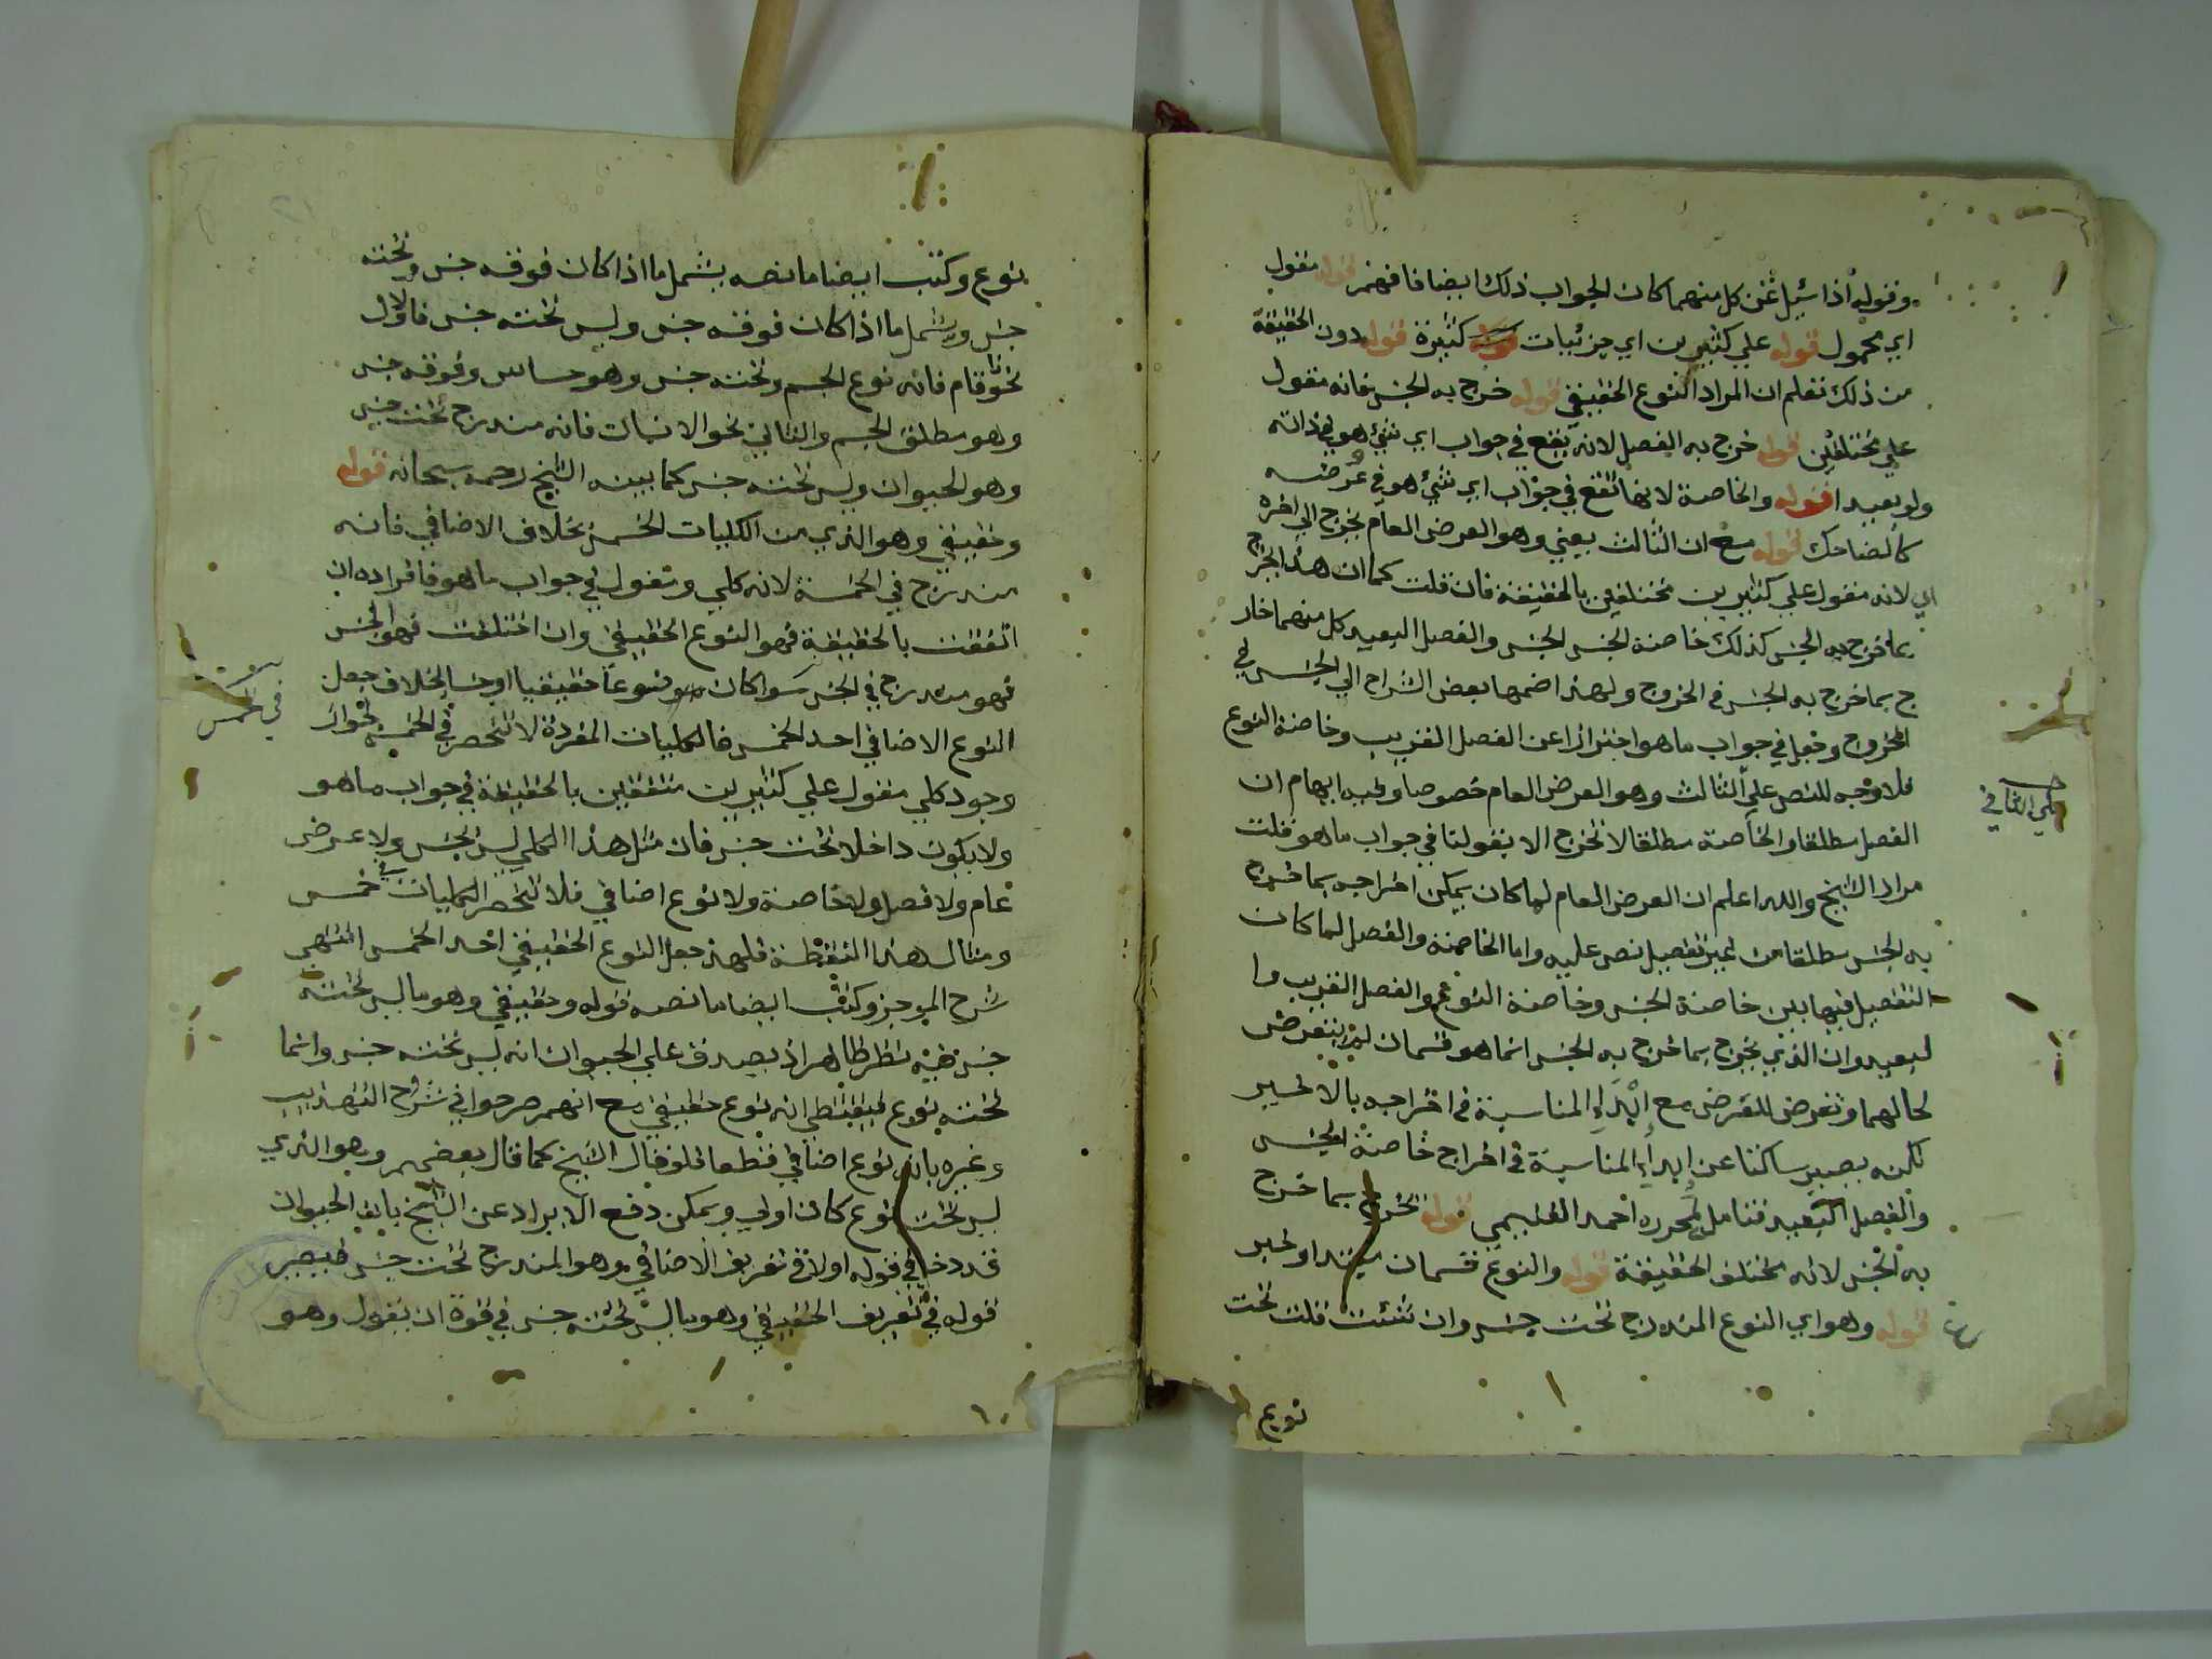 وقوله اذا سئل عن كل منهما كان الجواب ذلك ايضا فافهم قوله مقول
اي محمول قوله علي كثيرين اي جزئيات كثيرة قوله دون الحقيقة
من ذلك تعلم ان المراد النوع الحقيقي قوله خرج به الجنس فانه مقول
علي مختلفين قوله خرج به الفصل لانه يقع في جواب اي شئ هو في ذاته
ولو بعيدا قوله والخاصة لانها تقع في جواب اي شئ هو في عرضه
كالضاحك قوله مع ان الثالث يعني وهو العرض العام يخرج الي اخره
اي لانه مقول علي كثيرين مختلفين بالحقيقة فان قلت كما ان هذا خرج
بما خرج به الجنس كذلك خاصة الجنس والفصل البعيد كل منهما خار
ج بما خرج به الجنس في الخروج ولهذا ضمها بعض الشراح الي الجنس في
الخروج وجعل في جواب ما هو احترازا عن الفصل القريب وخاصة النوع
فلا وجه للنص علي الثالث وهو العرض العام خصوصا وفيه ايهام ان
الفصل مطلقا والخاصة مطلقا لا تخرج الا بقولنا في جواب ما هو قلت
مراد الشيخ والله اعلم ان العرض العام لما كان يمكن اخراجه بما خرج
به الجنس مطلقا من غير تفصيل نص عليه واما الخاصة والفصل لما كان
التفصيل فيها بين خاصة الجنس وخاصة النوع والفصل القريب وا
لبعيد وان الذي يخرج بما خرج به الجنس انما هو قسمان لم يتعرض
لحالهما وتعرض للعرض مع ابداء المناسبة في اخراجه بالاخير
لكنه يصير ساكتا عن ابداء المناسبة في اخراج خاصة الجنس
والفصل البعيد فتامل لمحرره احمد القليبي قوله تخرج بما خرج
به الجنس لانه مختلف الحقيقة قوله والنوع قسمان مبتدا وخبر
قوله وهو اي النوع المندرج تحت جنس وان شئت قلت تحت
نوع
علي الثاني
نوع وكتب ايضا ما نصه يشمل ما اذا كان فوقه جنس وتحته
جنس ويشمل ما اذا كان فوقه جنس وليس تحته جنس فالاول
نحو قام فانه نوع الجسم وتحته جنس وهو حساس وفوقه جنس
وهو مطلق الجسم والثاني نحو الانسان فانه مندرج تحت جنس
وهو الحيوان وليس تحته جنس كما بينه الشيخ رحمه سبحانه قوله
وحقيقي وهو الذي من الكليات الخمس بخلاف الاضافي فانه
مندرج في الخمسة لانه كلي ومقول في جواب ما هو فافراده ان
اتفقت بالحقيقة فهو النوع الحقيقي وان اختلفت فهو الجنس
فهو مندرج في الخمس سوا كان نوعا حقيقيا او جنسا بخلاف جعل
في الخمس
النوع الاضافي احد الخمس فالكليات المفردة لا تنحصر في الخمس لجواز
وجود كلي مقول علي كثيرين متفقين بالحقيقة في جواب ما هو
ولا يكون داخلا تحت جنس فان مثل هذا الكلي ليس بجنس ولا عرض
عام ولا فصل ولا خاصة ولا نوع اضافي فلا تنحصر الكليات في خمس
ومثال هذا النقطة فلهذ جعل النوع الحقيقي احد الخمس انتهي
شرح الموجز وكتب ايضا ما نصه قوله وحقيقي وهو ما ليس تحته
جنس فيه نظر ظاهر اذ يصدق علي الحيوان انه ليس تحته جنس وانما
تحته نوع فيقتضي انه نوع حقيقي مع انهم صرحوا في شرح التهذيب
وغيره بانه نوع اضافي قطعا فلو قال الشيخ كما قال بعضهم وهو الذي
ليس تحته نوع كان اولي ويمكن دفع الايراد عن الشيخ بان الحيوان
قد دخل في قوله اولا في تعريف الاضافي وهو المندرج تحت جنس فيصير
قوله في تعريف الحقيقي وهو ما ليس تحته جنس في قوة ان يقول وهو